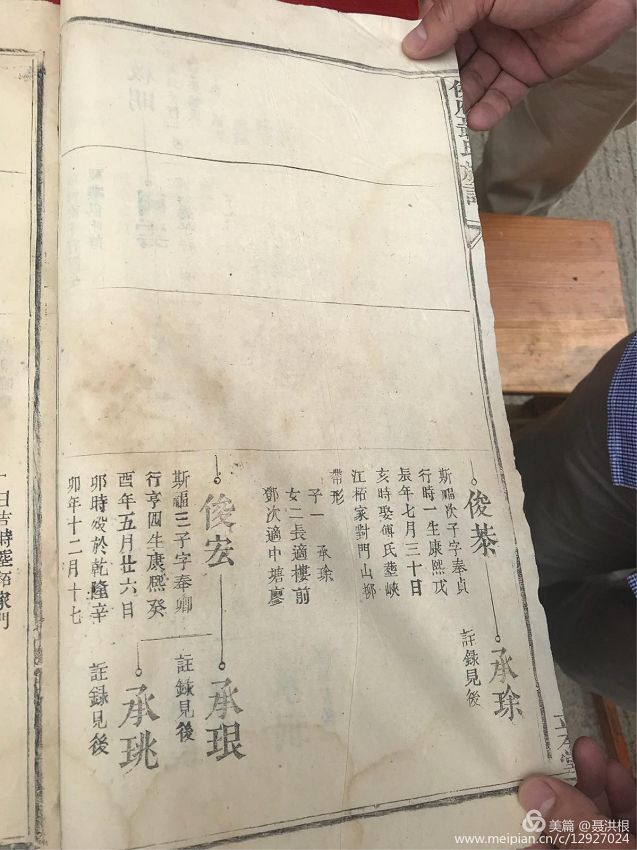 氏族譜
俊恭
斯福次子字奉貞
行時一生康熙戊
辰年七月三十日
亥時娶傅氏塟峽
江栢家對門山
帶形
子一 承
女二長適樓前
鄧次適中塘廖
承
註錄見後
俊宏
斯福三子字奉卿
行亨四生康熙癸
酉年五月廿六日
卯時歿於乾隆辛
卯年十二月十七
承珢
註錄見後
承珧
註錄見後
日吉時塟栢家門
美篇 @聂洪根
www.meipian.cn/c/12927024